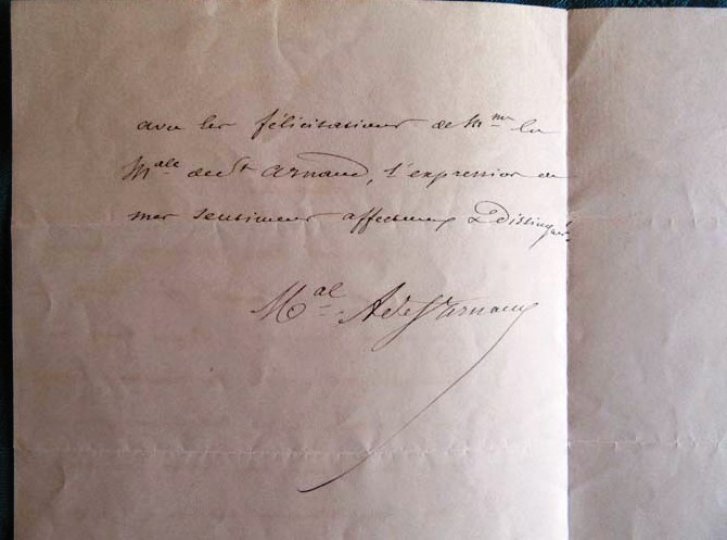 avec les félicitations de Mme la
Male de St Arnaud, l'expression de
mes sentiments affectueux & distingués.
Mal A de St Arnaud